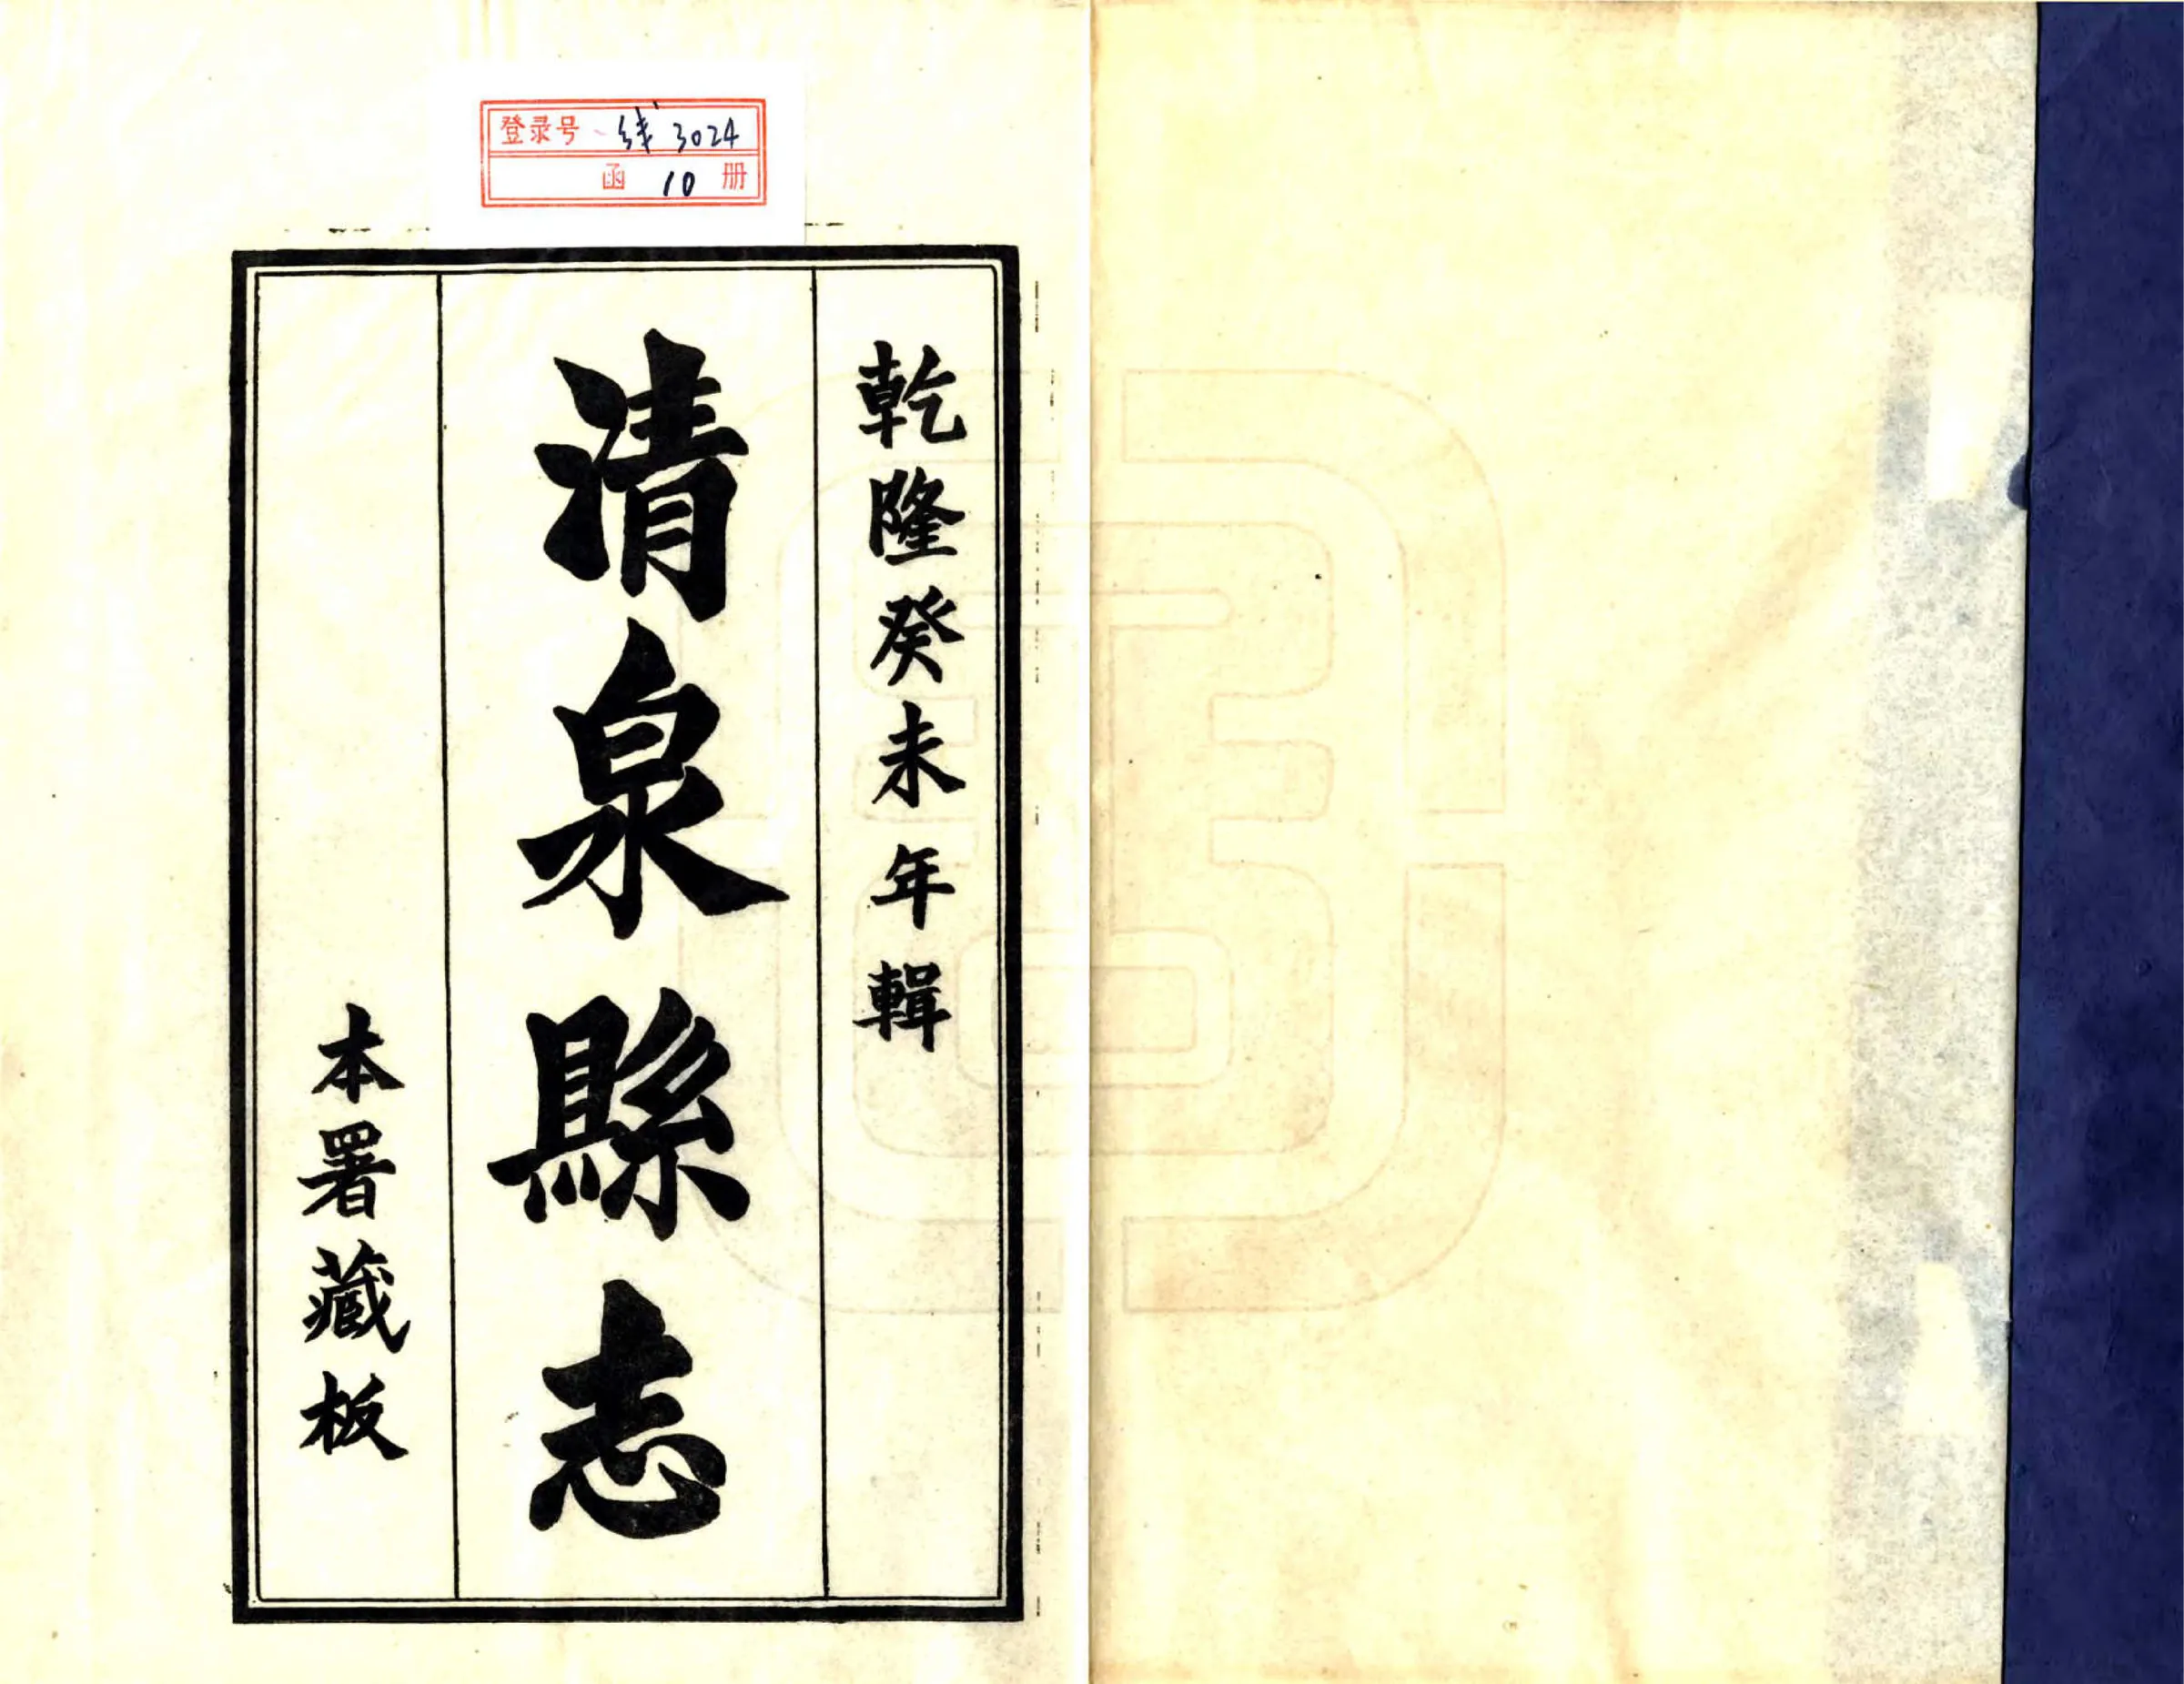 登录号 线 3024
函 10 册
乾隆癸未年輯
清泉縣志
本署藏板